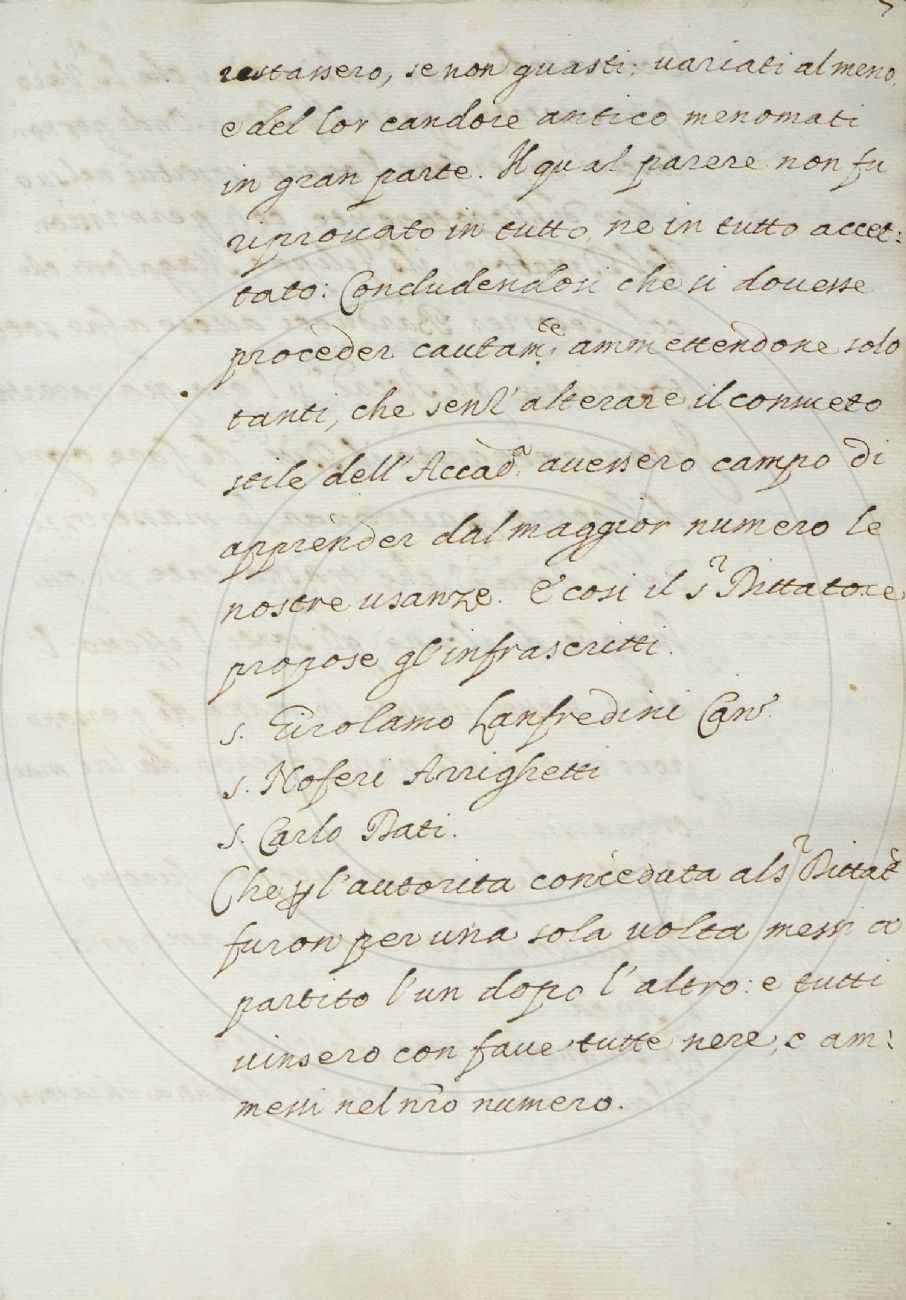 7
restassero, se non guasti, variati almeno,
e del lor candore antico menomati
in gran parte. Il qual parere non fu
riprouato in tutto, ne in tutto accet:
tato: Concludendosi che si douesse
proceder cautam.te ammettendone solo
tanti, che senz' alterare il consueto
stile dell' Accad.a auessero campo di
apprender dal maggior numero le
nostre usanze. E cosi il s.r Dittatore
propose gl'infrascritti.
s. Girolamo Lanfredini Can.
s. Noferi Arrighetti
s. Carlo Dati.
Che ꝑ l'autorita conceduta al s.r Dittat.e
furon per una sola uolta messi a
partito l'un dopo l'altro: e tutti
uinsero con faue tutte nere, e am:
messi nel nr̃o numero.